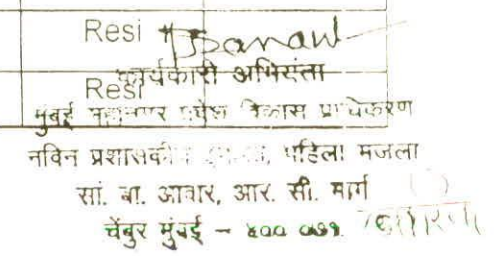 Resi
Resi
कार्यकारी अभियंता
मुंबई महानगर प्रदेश विकास प्राधिकरण
नविन प्रशासकीय इमारत, पहिला मजला
सां. बा. आवार, आर. सी. मार्ग
चेंबुर मुंबई - ४०० ०७१.